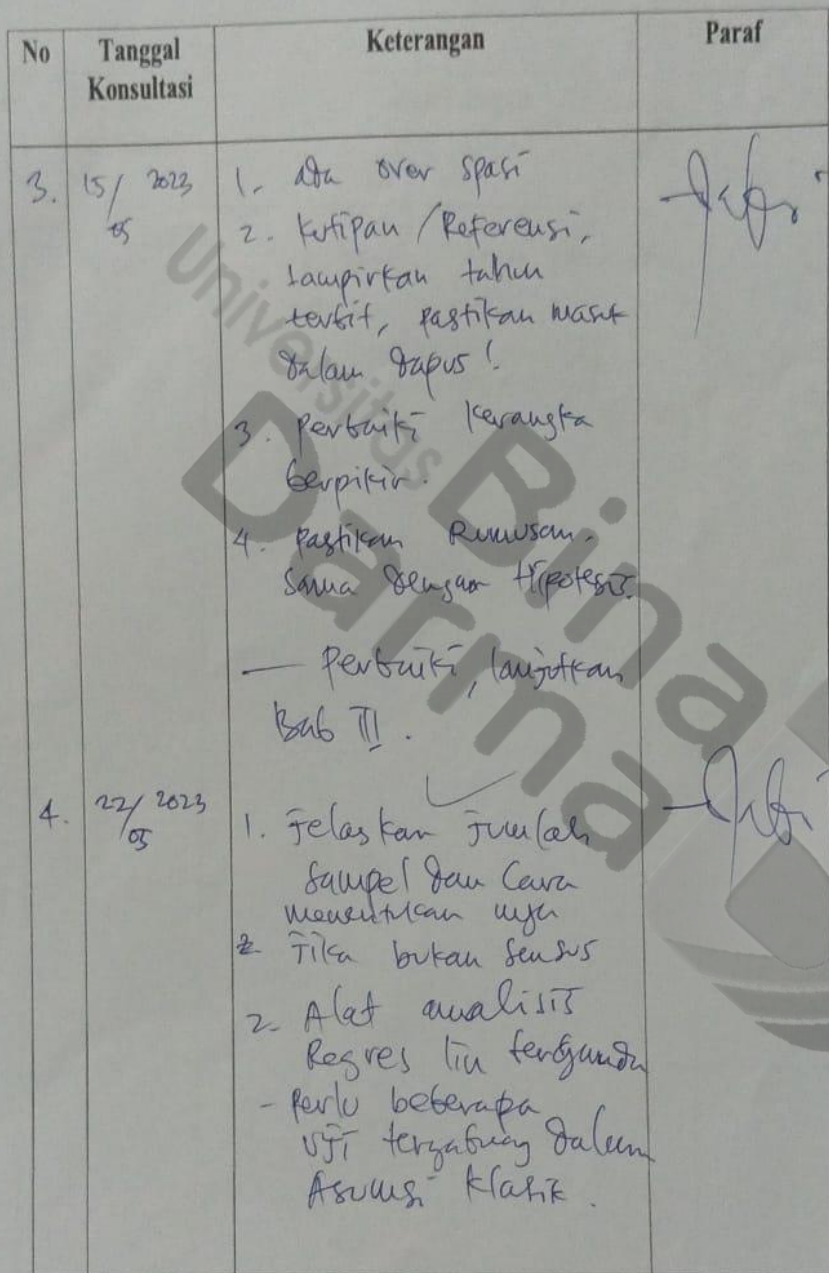 No Tanggal Konsultasi Keterangan Paraf
3. 15/05 2023
1. ada over spasi
2. Kutipan / Referensi,
Lampirkan tahun
terbit, pastikan masuk
dalam dapus !
3. Perbaiki Kerangka
berpikir.
4. Pastikan Rumusan
sama dengan Hipotesis.
— Perbaiki, lanjutkan
Bab III.
4. 22/05 2023
1. Jelaskan Jumlah
Sampel dan Cara
menentukan nya
Jika bukan Sensus
2. Alat analisis
Regres lin berganda
- Perlu beberapa
Uji tergabung dalam
Asumsi Klasik.
Universitas
Bina
Darma